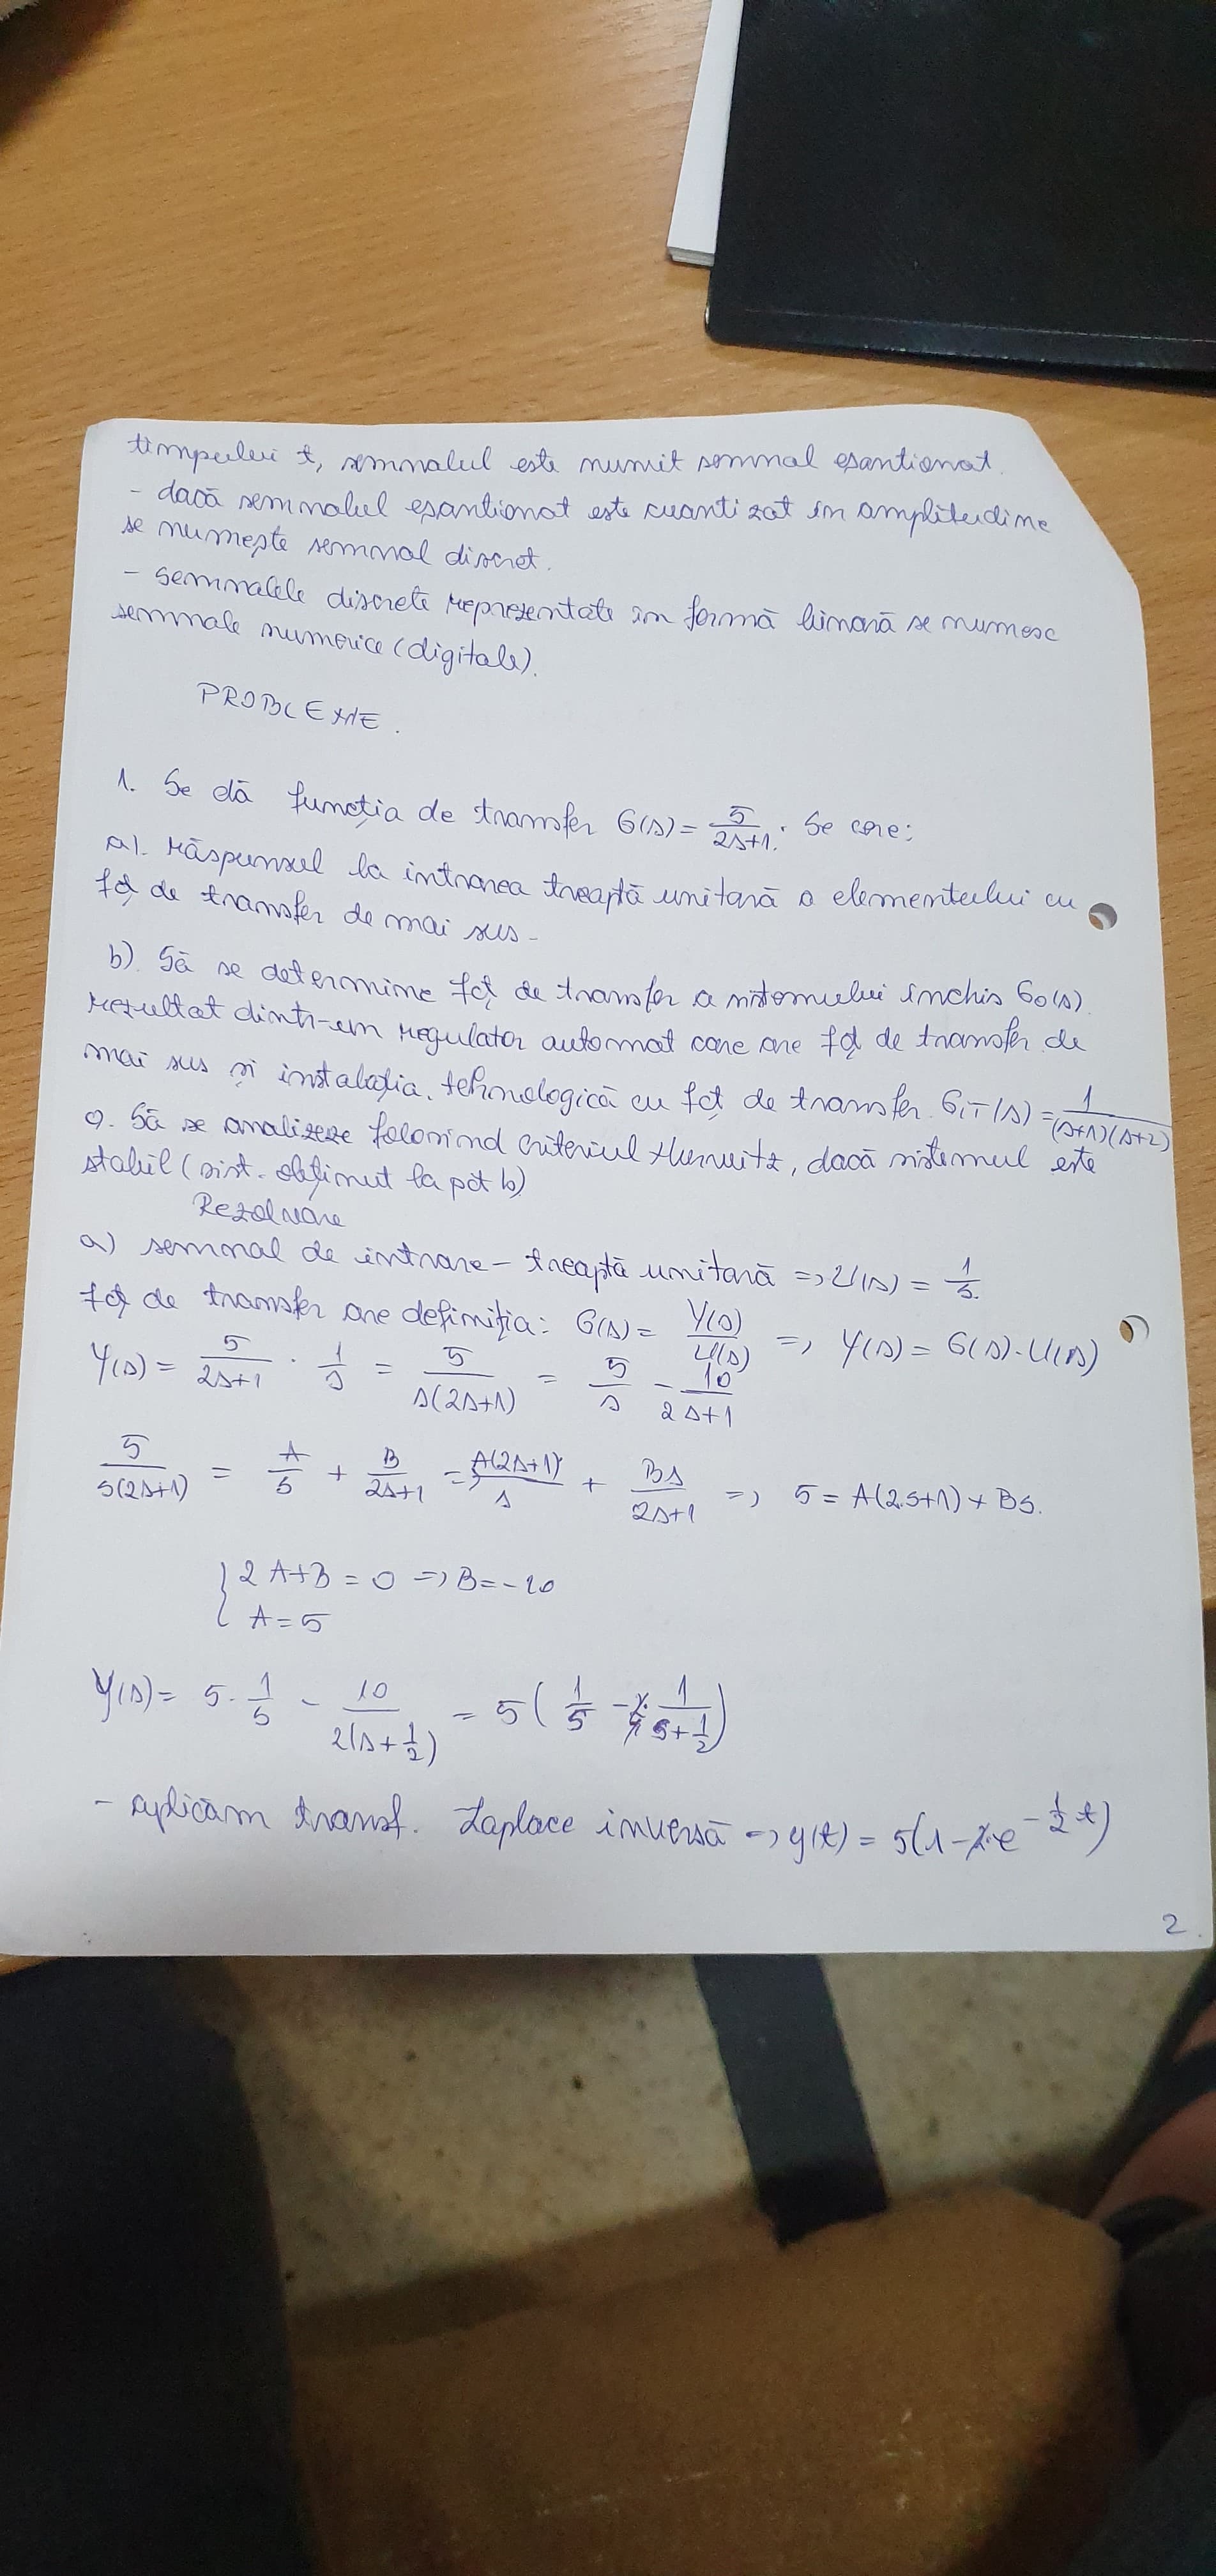 timpului t, semnalul este numit semnal eșantionat.
- dacă semnalul eșantionat este cuantizat în amplitudine
se numește semnal discret.
- Semnalele discrete reprezentate în formă binară se numesc
semnale numerice (digitale).
PROBLEME.
1. Se dă funcția de transfer G(s) = 5/(2s+1). Se cere:
a). Răspunsul la intrarea treaptă unitară a elementului cu
fcț de transfer de mai sus -
b). Să se determine fcț de transfer a sistemului închis G0(s)
rezultat dintr-un regulator automat care are fcț de transfer de
mai sus și instalația tehnologică cu fcț de transfer GIT(s) = 1/((s+1)(s+2))
c). Să se analizeze folosind criteriul Hurwitz, dacă sistemul este
stabil (sist. obținut la pct b)
Rezolvare
a) semnal de intrare - treaptă unitară => U(s) = 1/s.
fcț de transfer are definiția: G(s) = Y(s)/U(s) => Y(s) = G(s)·U(s)
Y(s) = 5/(2s+1) · 1/s = 5/(s(2s+1)) = 5/s - 10/(2s+1)
5/(s(2s+1)) = A/s + B/(2s+1) => A(2s+1)/s + Bs/(2s+1) => 5 = A(2s+1) + Bs.
{ 2A+B = 0 => B = -10
A = 5
Y(s) = 5 · 1/s - 10/(2(s+1/2)) = 5(1/s - 1/(s+1/2))
- aplicăm transf. Laplace inversă => y(t) = 5(1 - e^(-1/2 t))
2.